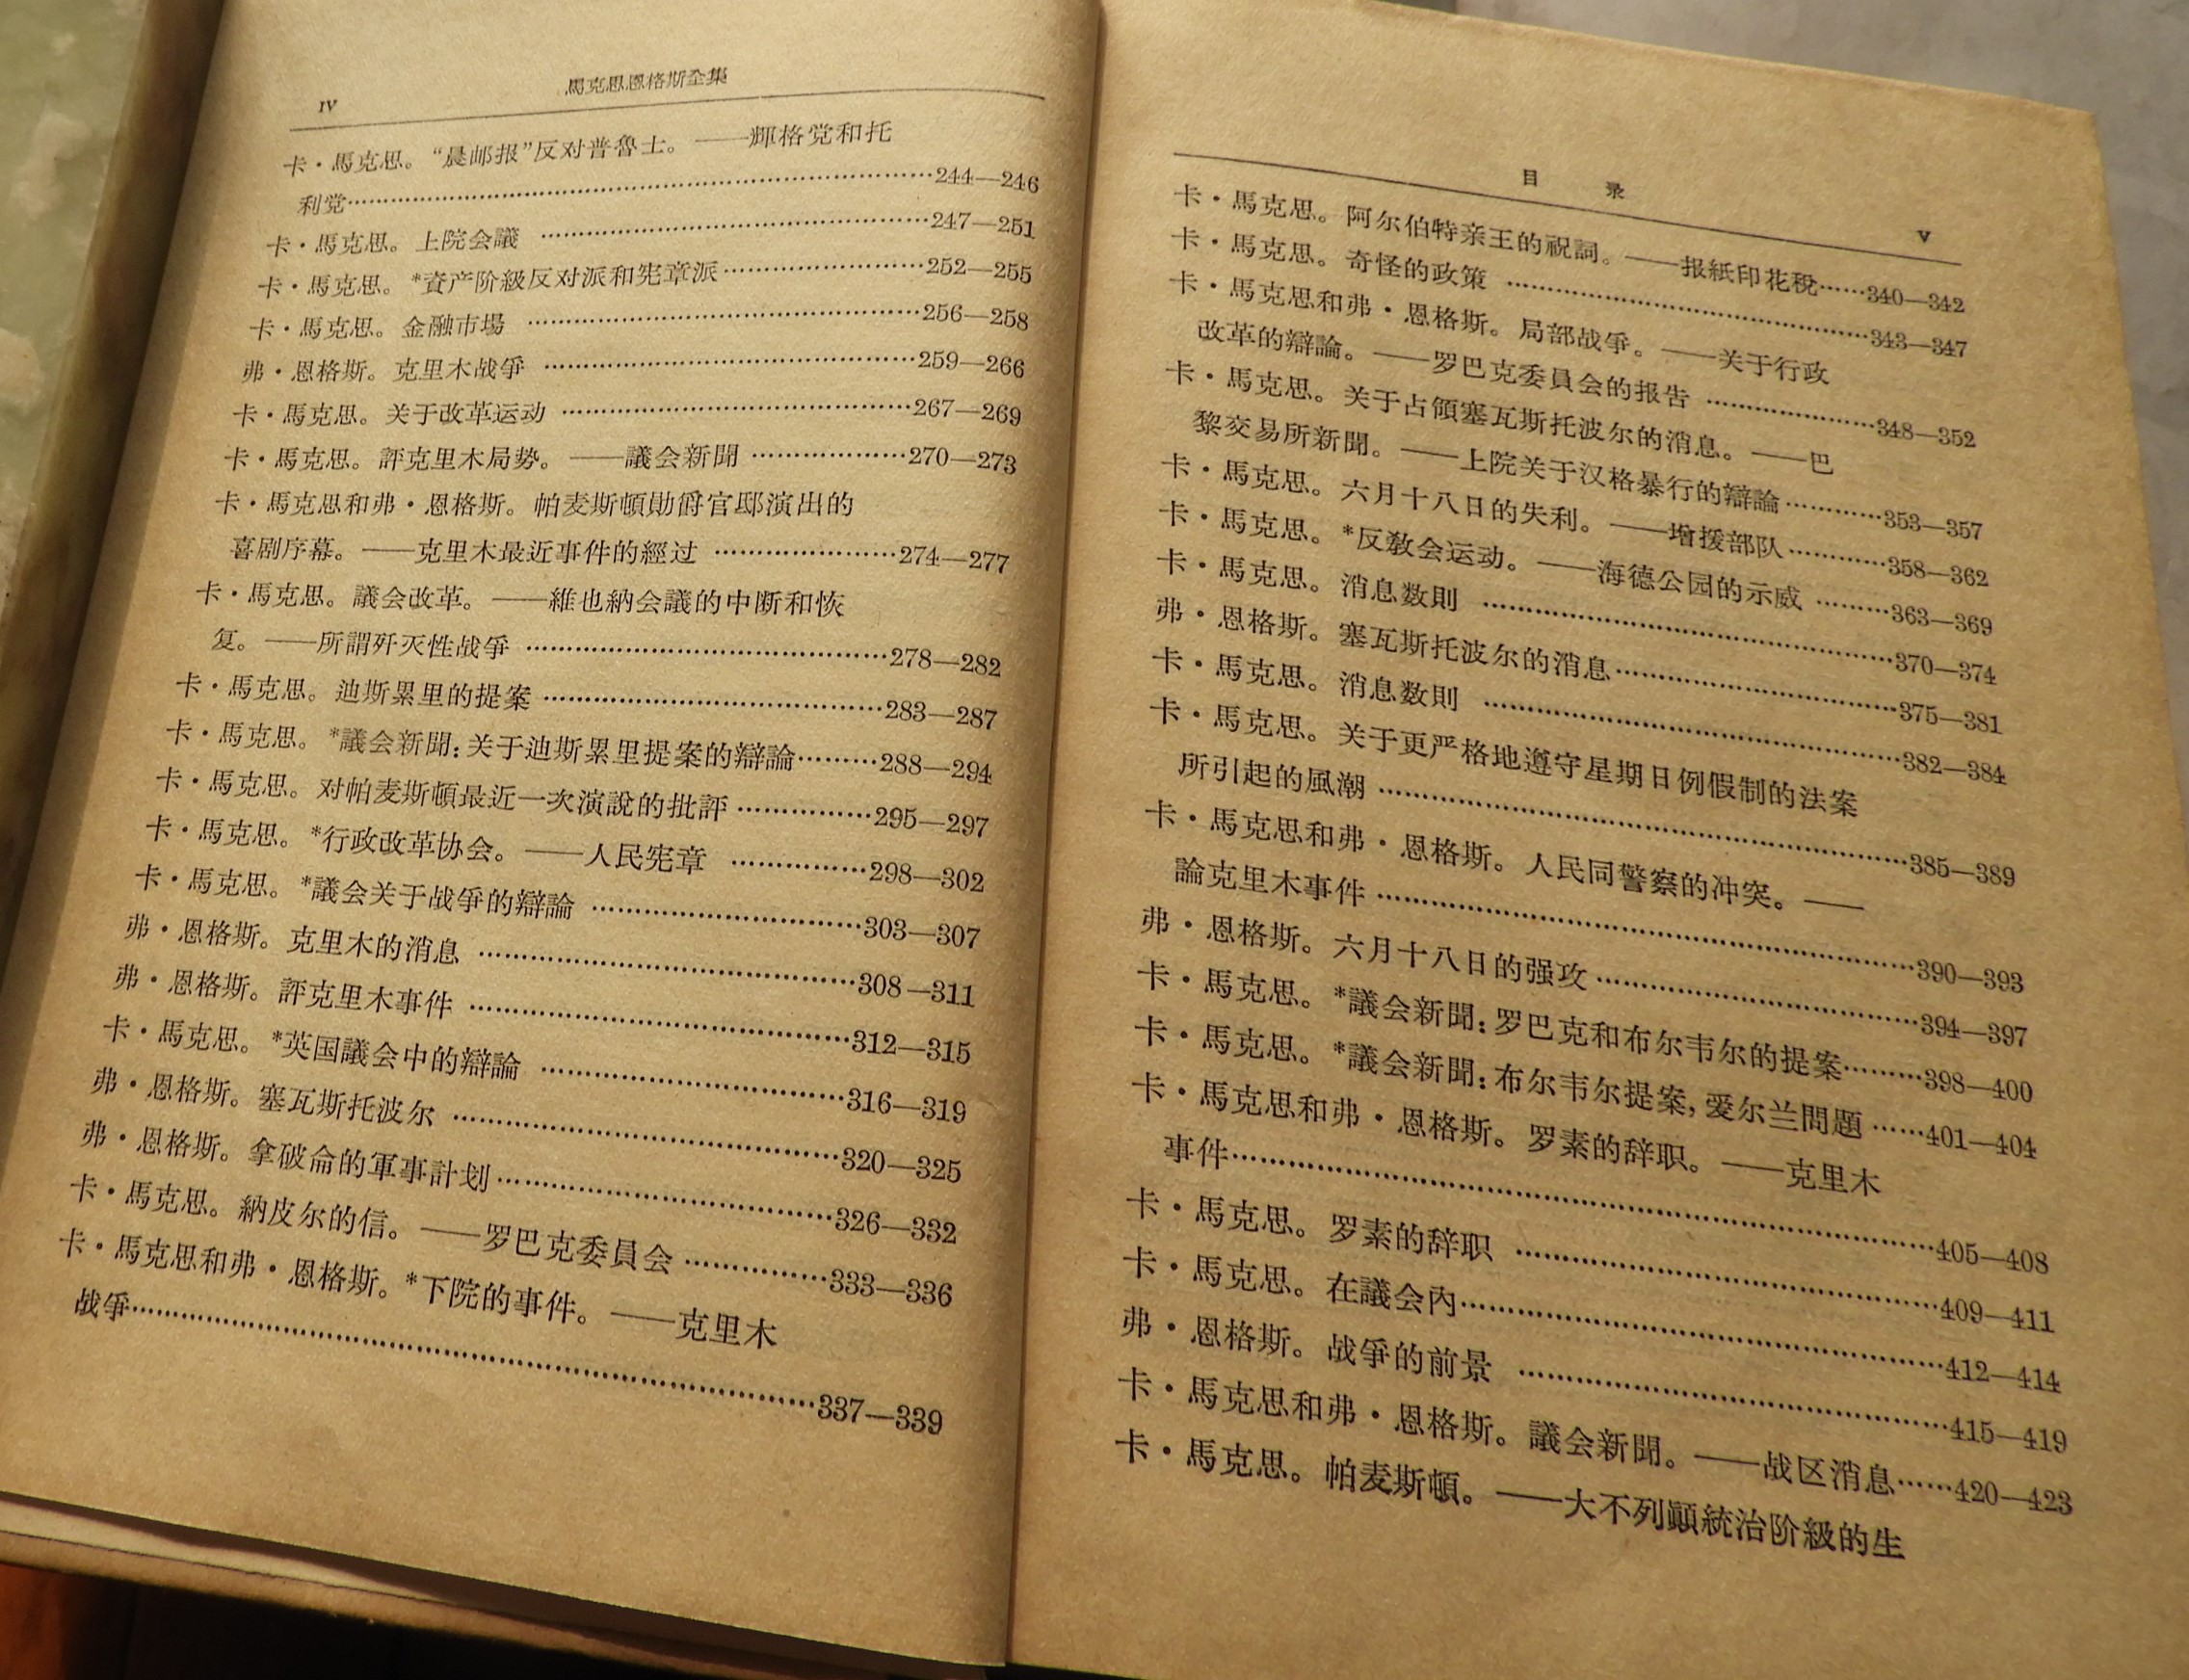 IV
馬克思恩格斯全集
卡·馬克思。“晨邮报”反对普魯士。——輝格党和托
利党……244—246
卡·馬克思。上院会議……247—251
卡·馬克思。*資产阶級反对派和宪章派……252—255
卡·馬克思。金融市場……256—258
弗·恩格斯。克里木战爭……259—266
卡·馬克思。关于改革运动……267—269
卡·馬克思。評克里木局势。——議会新聞……270—273
卡·馬克思和弗·恩格斯。帕麦斯頓勛爵官邸演出的
喜剧序幕。——克里木最近事件的經过……274—277
卡·馬克思。議会改革。——維也納会議的中断和恢
复。——所謂歼灭性战爭……278—282
卡·馬克思。迪斯累里的提案……283—287
卡·馬克思。*議会新聞：关于迪斯累里提案的辯論……288—294
卡·馬克思。对帕麦斯頓最近一次演說的批評……295—297
卡·馬克思。*行政改革协会。——人民宪章……298—302
卡·馬克思。*議会关于战爭的辯論……303—307
弗·恩格斯。克里木的消息……308—311
弗·恩格斯。評克里木事件……312—315
卡·馬克思。*英国議会中的辯論……316—319
弗·恩格斯。塞瓦斯托波尔……320—325
弗·恩格斯。拿破侖的軍事計划……326—332
卡·馬克思。納皮尔的信。——罗巴克委員会……333—336
卡·馬克思和弗·恩格斯。*下院的事件。——克里木
战爭……337—339
目 录
V
卡·馬克思。阿尔伯特亲王的祝詞。——报紙印花稅……340—342
卡·馬克思。奇怪的政策……343—347
卡·馬克思和弗·恩格斯。局部战爭。——关于行政
改革的辯論。——罗巴克委員会的报告……348—352
卡·馬克思。关于占領塞瓦斯托波尔的消息。——巴
黎交易所新聞。——上院关于汉格暴行的辯論……353—357
卡·馬克思。六月十八日的失利。——增援部队……358—362
卡·馬克思。*反敎会运动。——海德公园的示威……363—369
卡·馬克思。消息数則……370—374
弗·恩格斯。塞瓦斯托波尔的消息……375—381
卡·馬克思。消息数則……382—384
卡·馬克思。关于更严格地遵守星期日例假制的法案
所引起的風潮……385—389
卡·馬克思和弗·恩格斯。人民同警察的冲突。——
論克里木事件……390—393
弗·恩格斯。六月十八日的强攻……394—397
卡·馬克思。*議会新聞：罗巴克和布尔韦尔的提案……398—400
卡·馬克思。*議会新聞：布尔韦尔提案，爱尔兰問題……401—404
卡·馬克思和弗·恩格斯。罗素的辞职。——克里木
事件……405—408
卡·馬克思。罗素的辞职……409—411
卡·馬克思。在議会內……412—414
弗·恩格斯。战爭的前景……415—419
卡·馬克思和弗·恩格斯。議会新聞。——战区消息……420—423
卡·馬克思。帕麦斯頓。——大不列顚統治阶級的生